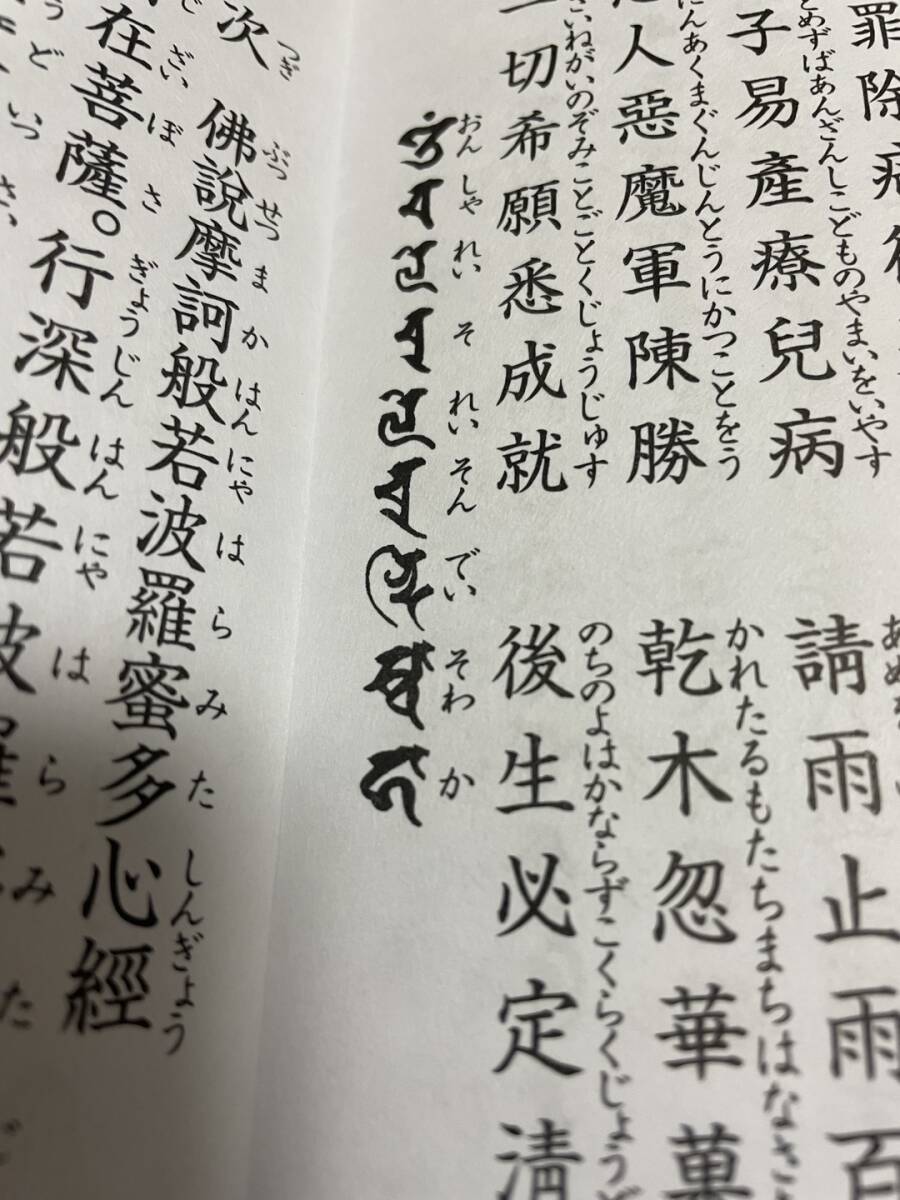 罪除病
子易產療兒病　請雨止雨百
とめずばあんざんしこどものやまいをいやす
人惡魔軍陳勝　乾木忽華菓
にんあくまぐんじんとうにかつことをう　かれたるもたちまちはなさ
一切希願悉成就　後生必定清
さいねがいのぞみことごとくじょうじゅす　のちのよはかならずごくらくじょうど
おん しゃ れい そ れい そん でい そわ か
次　佛說摩訶般若波羅蜜多心經
つぎ　ぶっせつまかはんにゃはらみたしんぎょう
在菩薩。行深般若波羅
ざいぼさ　ぎょうじんはんにゃはらみた